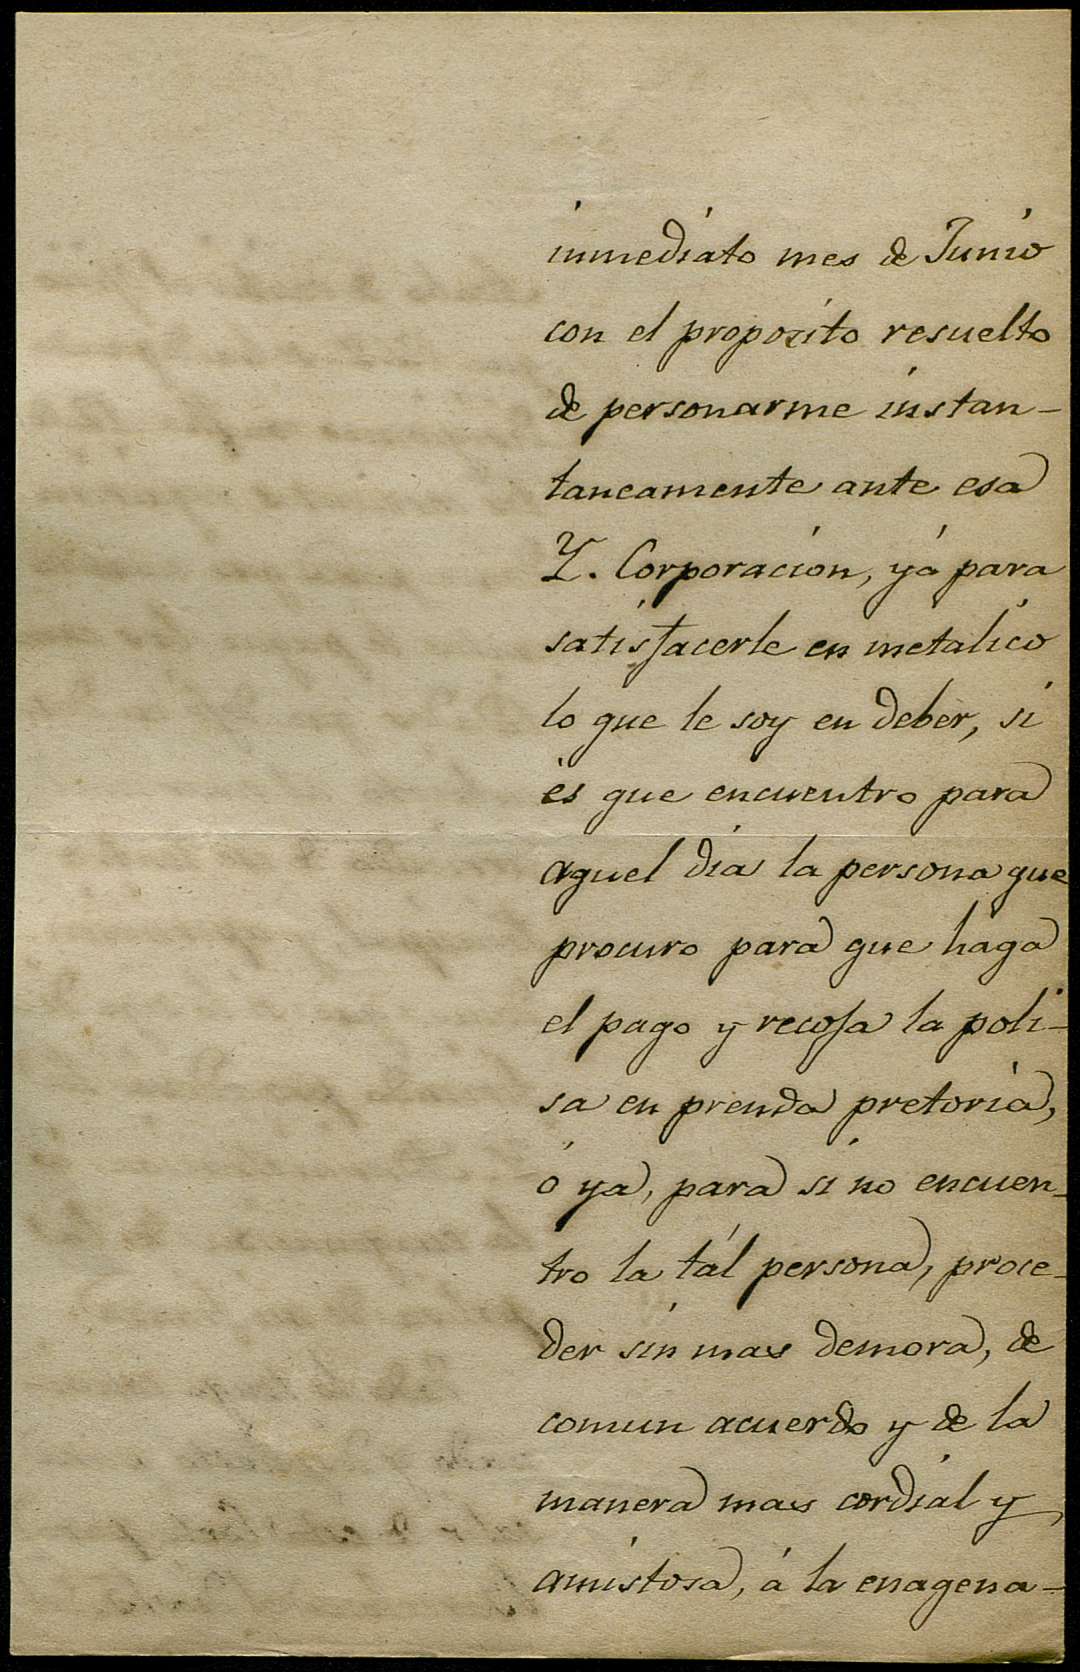 inmediato mes de Junio
con el proposito resuelto
de personarme instan-
taneamente ante esa
Y. Corporacion, yá para
satisfacerle en metalico
lo que le soy en deber, si
és que encuentro para
aquel dia la persona que
procuro para que haga
el pago y recoja la poli-
sa en prenda pretoria,
ó ya, para si no encuen-
tro la tál persona, proce-
der sin mas demora, de
comun acuerdo y de la
manera mas cordial y
amistosa, á la enagena-